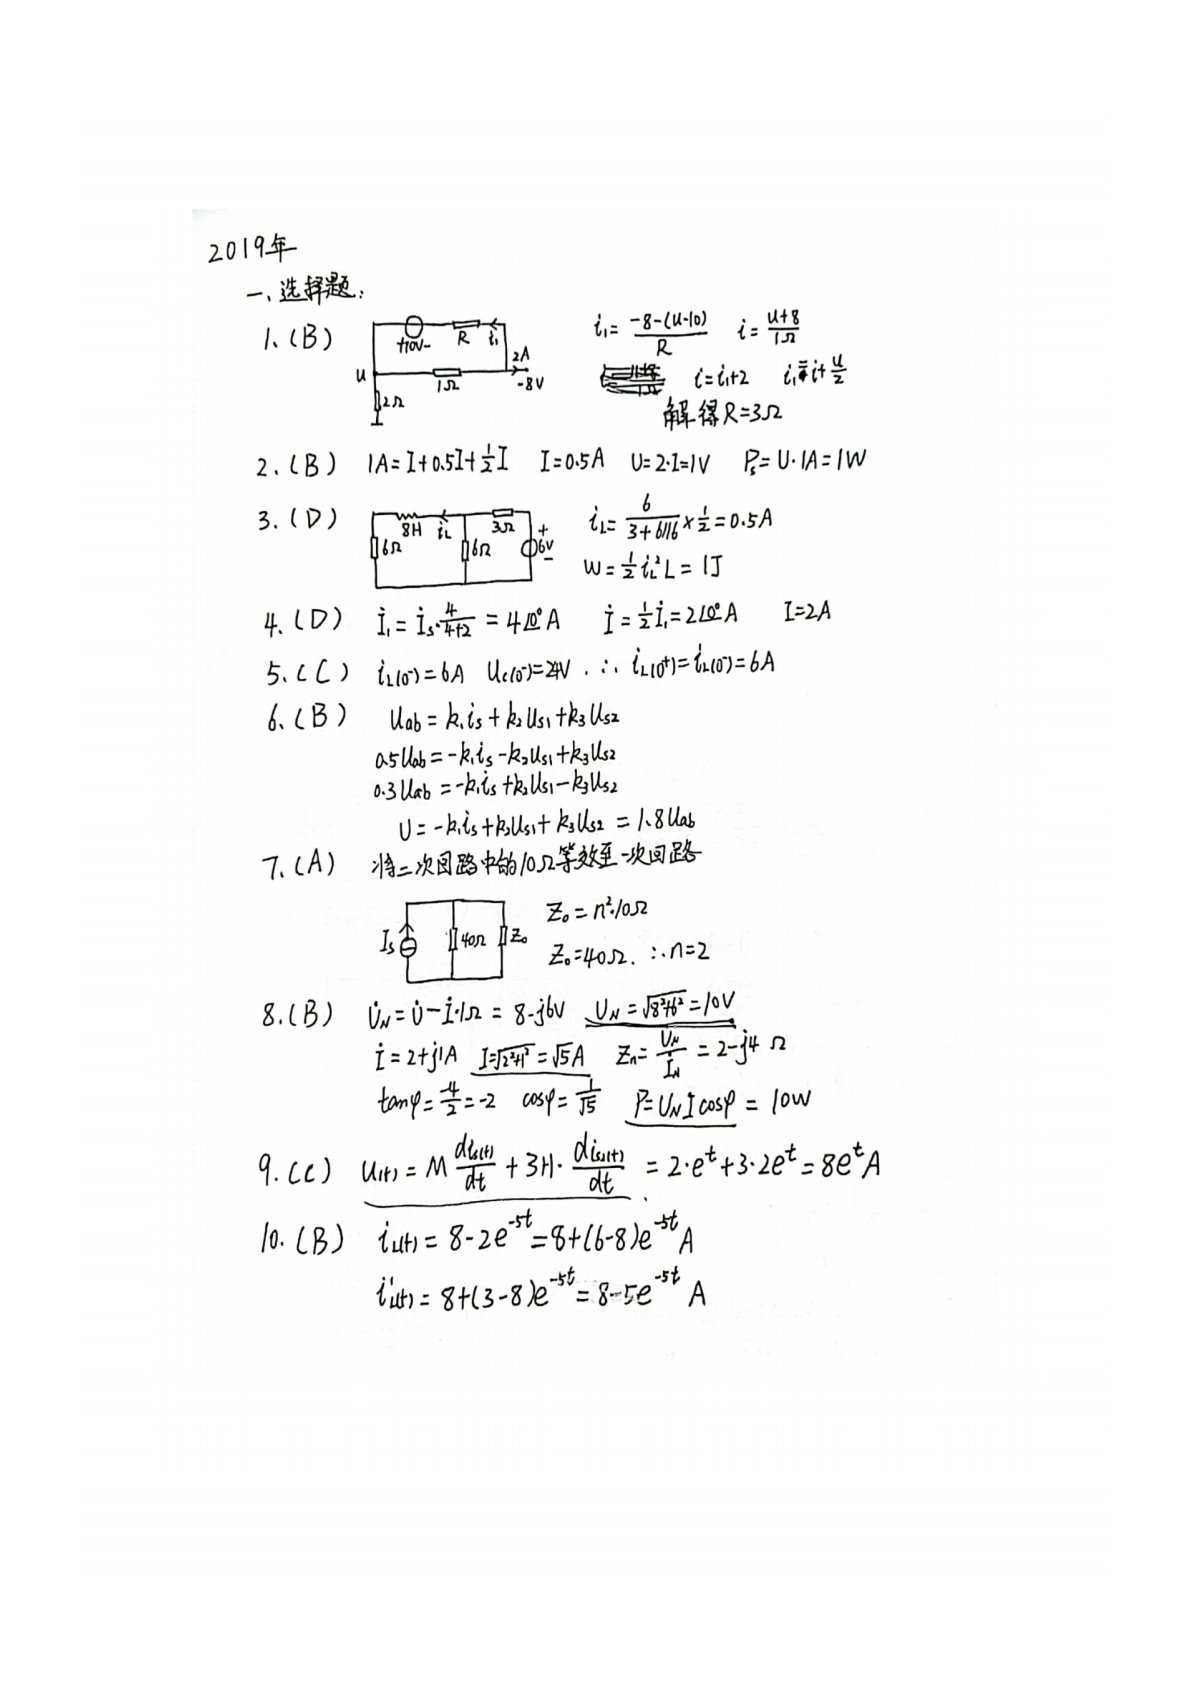 2019年
一、选择题:
1、(B) +10V- R i₁ 2A u 1Ω -8V 2Ω i₁=(-8-(u-10))/R i=(u+8)/1Ω
i=i₁+2 i₁=i+u/2
解得R=3Ω
2、(B) 1A=I+0.5I+½I I=0.5A U=2·I=1V Pₛ=U·1A=1W
3、(D) 8H i_L 3Ω 6Ω 6Ω + 6V - i_L=6/(3+6//6)×½=0.5A
W=½i_L²L=1J
4、(D) İ₁=İₛ·4/(4+2)=4∠0°A İ=½İ₁=2∠0°A I=2A
5、(C) i_L(0⁻)=6A U_c(0⁻)=24V.∴i_L(0⁺)=i_L(0⁻)=6A
6、(B) Uab=k₁iₛ+k₂Us₁+k₃Us₂
0.5Uab=-k₁iₛ-k₂Us₁+k₃Us₂
0.3Uab=-k₁iₛ+k₂Us₁-k₃Us₂
U=-k₁iₛ+k₂Us₁+k₃Us₂=1.8Uab
7、(A) 将二次回路中的10Ω等效至一次回路
Iₛ 40Ω Z₀ Z₀=n²·10Ω
Z₀=40Ω.∴n=2
8.(B) U̇_N=U̇-İ·1Ω=8-j6V U_N=√(8²+6²)=10V
İ=2+j1A I=√(2²+1²)=√5A Zn=U_N/I_N=2-j4 Ω
tanφ=-4/2=-2 cosφ=1/√5 P=U_N I cosφ=10W
9.(C) U(t)=M di_s(t)/dt+3H·di_s₁(t)/dt=2·eᵗ+3·2eᵗ=8eᵗA
10.(B) i_L(t)=8-2e⁻⁵ᵗ=8+(6-8)e⁻⁵ᵗA
i'_L(t)=8+(3-8)e⁻⁵ᵗ=8-5e⁻⁵ᵗ A